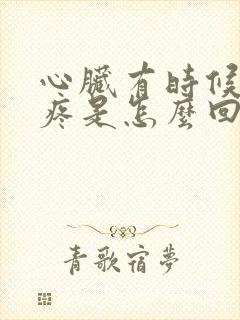 心臟有時候
疼是怎麼回
青歌宿夢